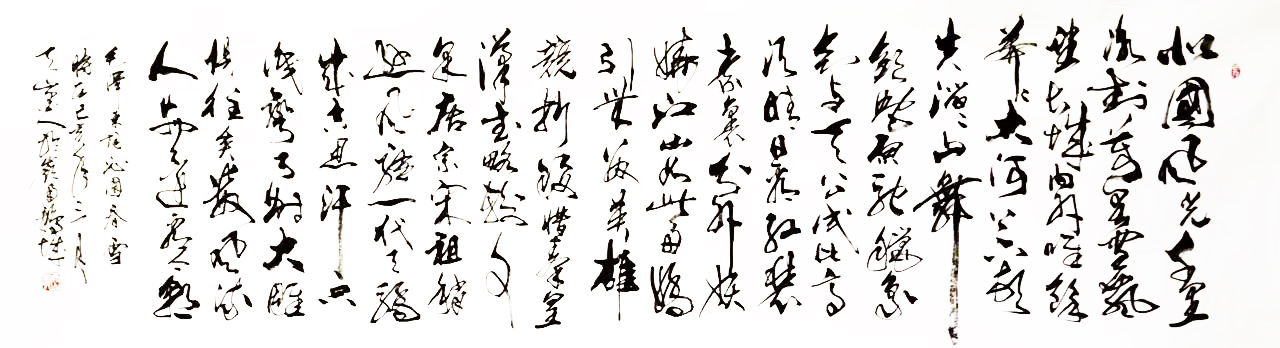 北國風光千里
冰封萬里雪飄
望長城內外唯餘
莽莽大河上下頓
失滔滔山舞
銀蛇原馳蠟象
欲與天公試比高
須晴日看紅裝
素裹分外妖
嬈江山如此多嬌
引無數英雄
競折腰惜秦皇
漢武略輸文
采唐宗宋祖稍
遜風騷一代天驕
成吉思汗只
識彎弓射大雕
俱往矣數風流
人物還看今朝
毛澤東詞沁園春雪
時在己亥年三月